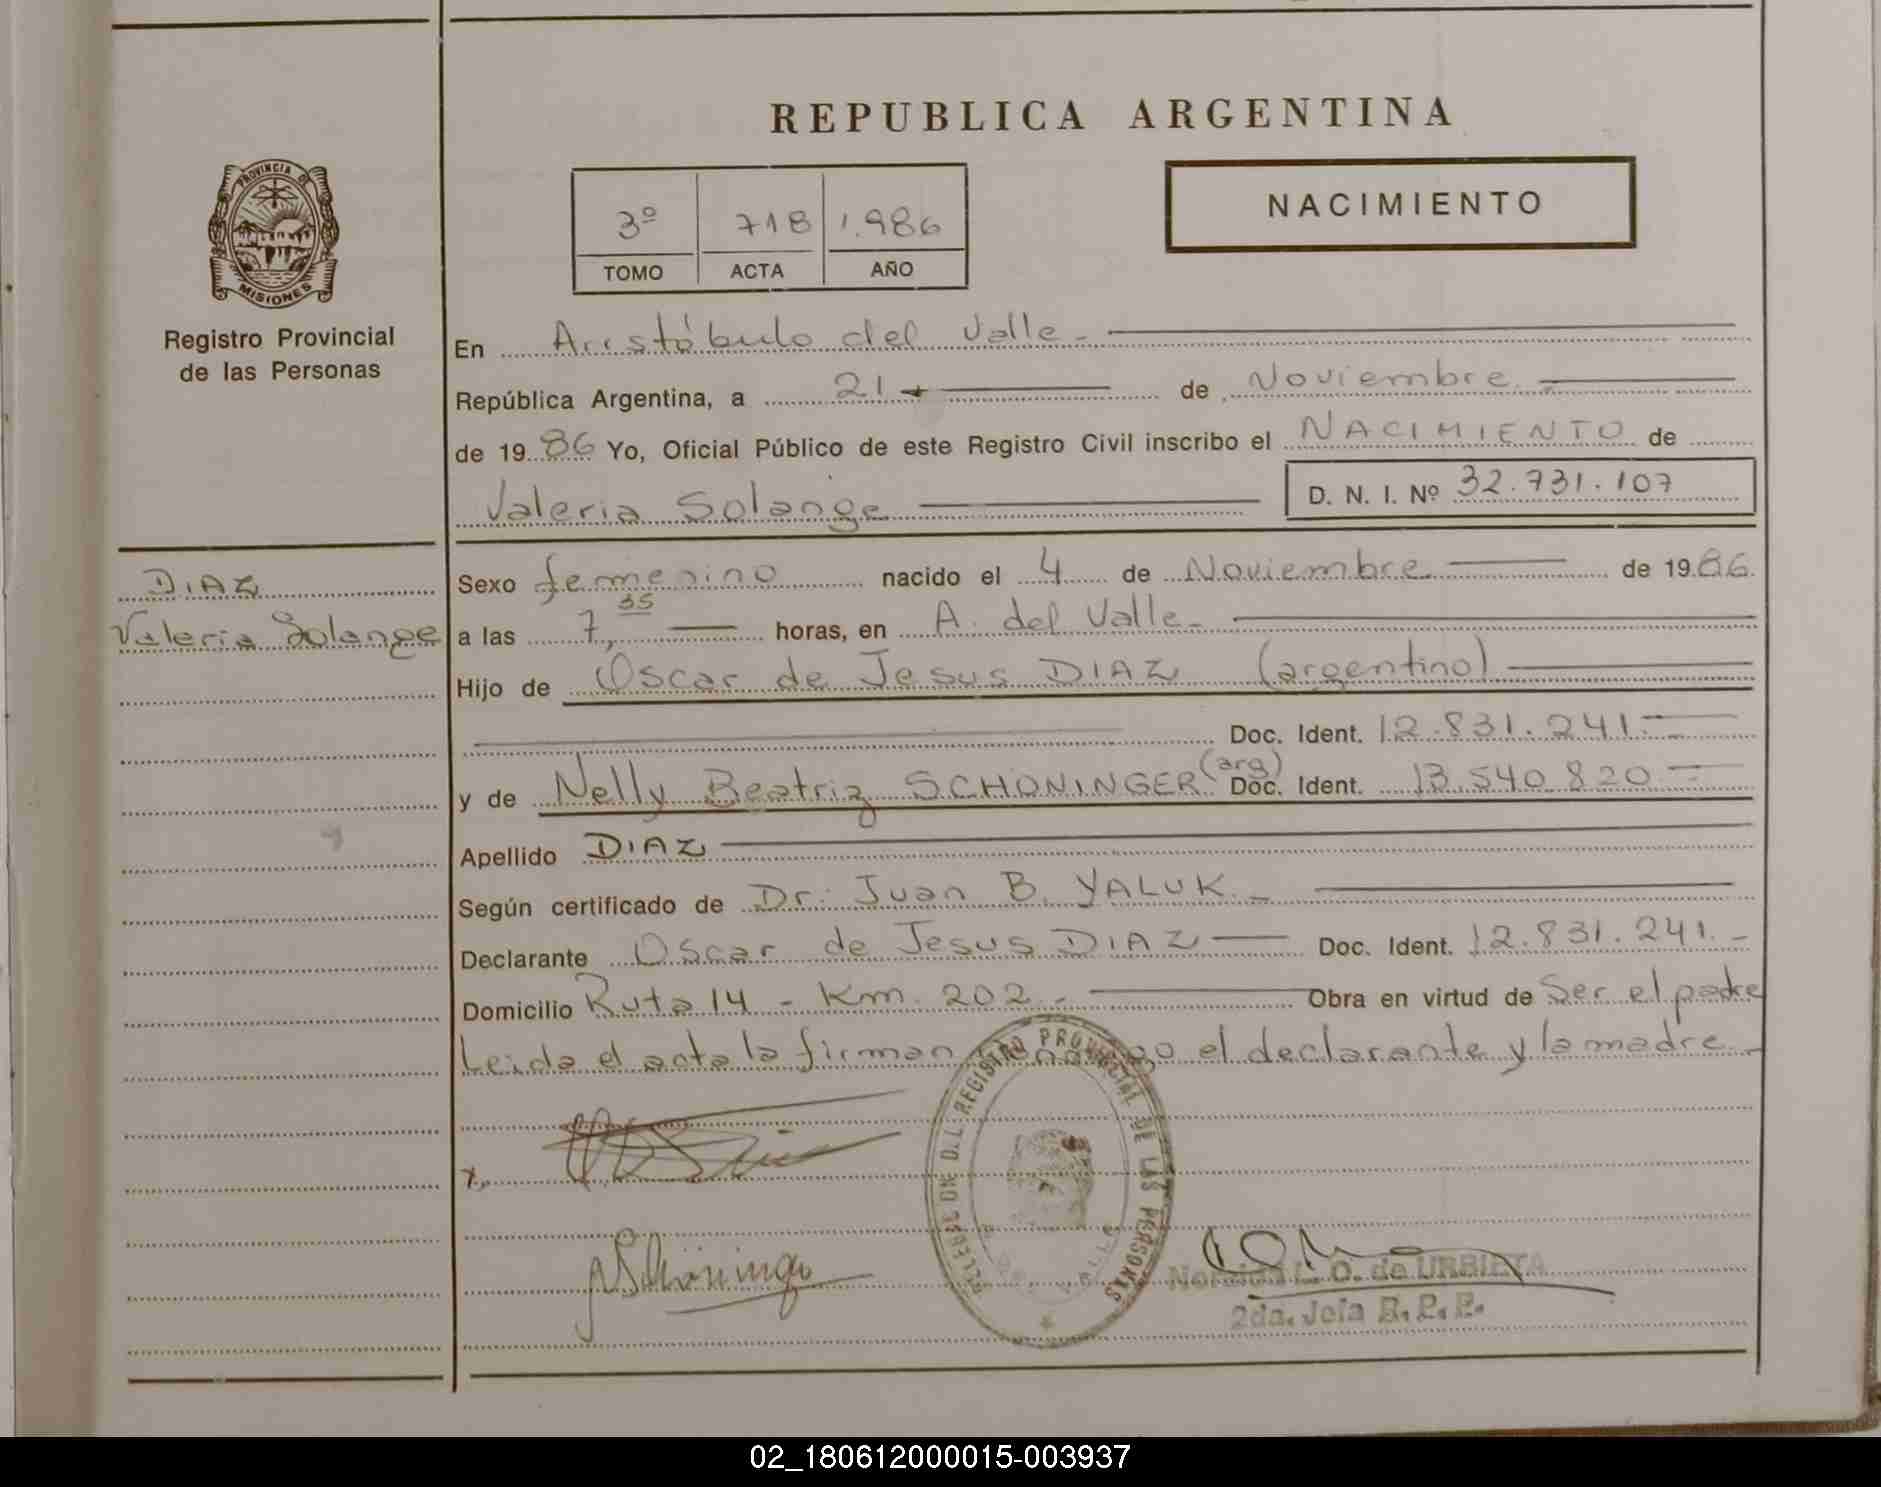 REPUBLICA ARGENTINA
PROVINCIA DE
MISIONES
Registro Provincial
de las Personas
3º 718 1.986
TOMO ACTA AÑO
NACIMIENTO
En Aristóbulo del Valle.-
República Argentina, a 21 de Noviembre.-
de 1986 Yo, Oficial Público de este Registro Civil inscribo el NACIMIENTO de
Valeria Solange D. N. I. Nº 32.731.107
DIAZ
Valeria Solange
Sexo femenino nacido el 4 de Noviembre de 1986.
a las 7,35 horas, en A. del Valle.-
Hijo de Oscar de Jesus DIAZ (argentino)
Doc. Ident. 12.831.241.-
y de Nelly Beatriz SCHÖNINGER (arg) Doc. Ident. 13.540.820.-
Apellido DIAZ
Según certificado de Dr. Juan B. YALUK.-
Declarante Oscar de Jesus DIAZ Doc. Ident. 12.831.241.-
Domicilio Ruta 14 - Km. 202.- Obra en virtud de Ser el padre
Leida el acta la firman conmigo el declarante y la madre.-
REGISTRO PROVINCIAL DE LAS PERSONAS
L. O. de URBIETA
2da. Jefa R. P. P.
02_180612000015-003937